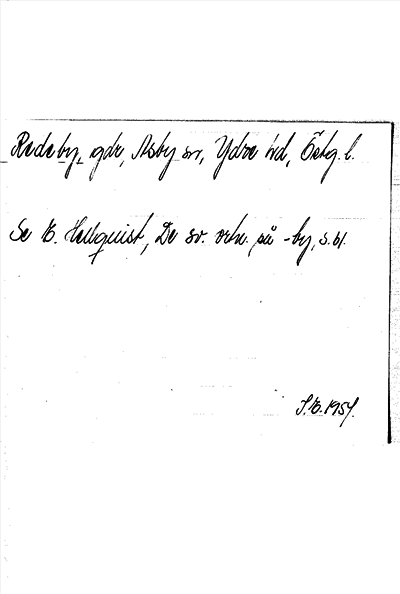 Radeby, gdr, Asby sn, Ydre hd, Östg. l.
Se E. Hellquist, De sv. ortn. på -by, s. 61.
S.E. 1954.